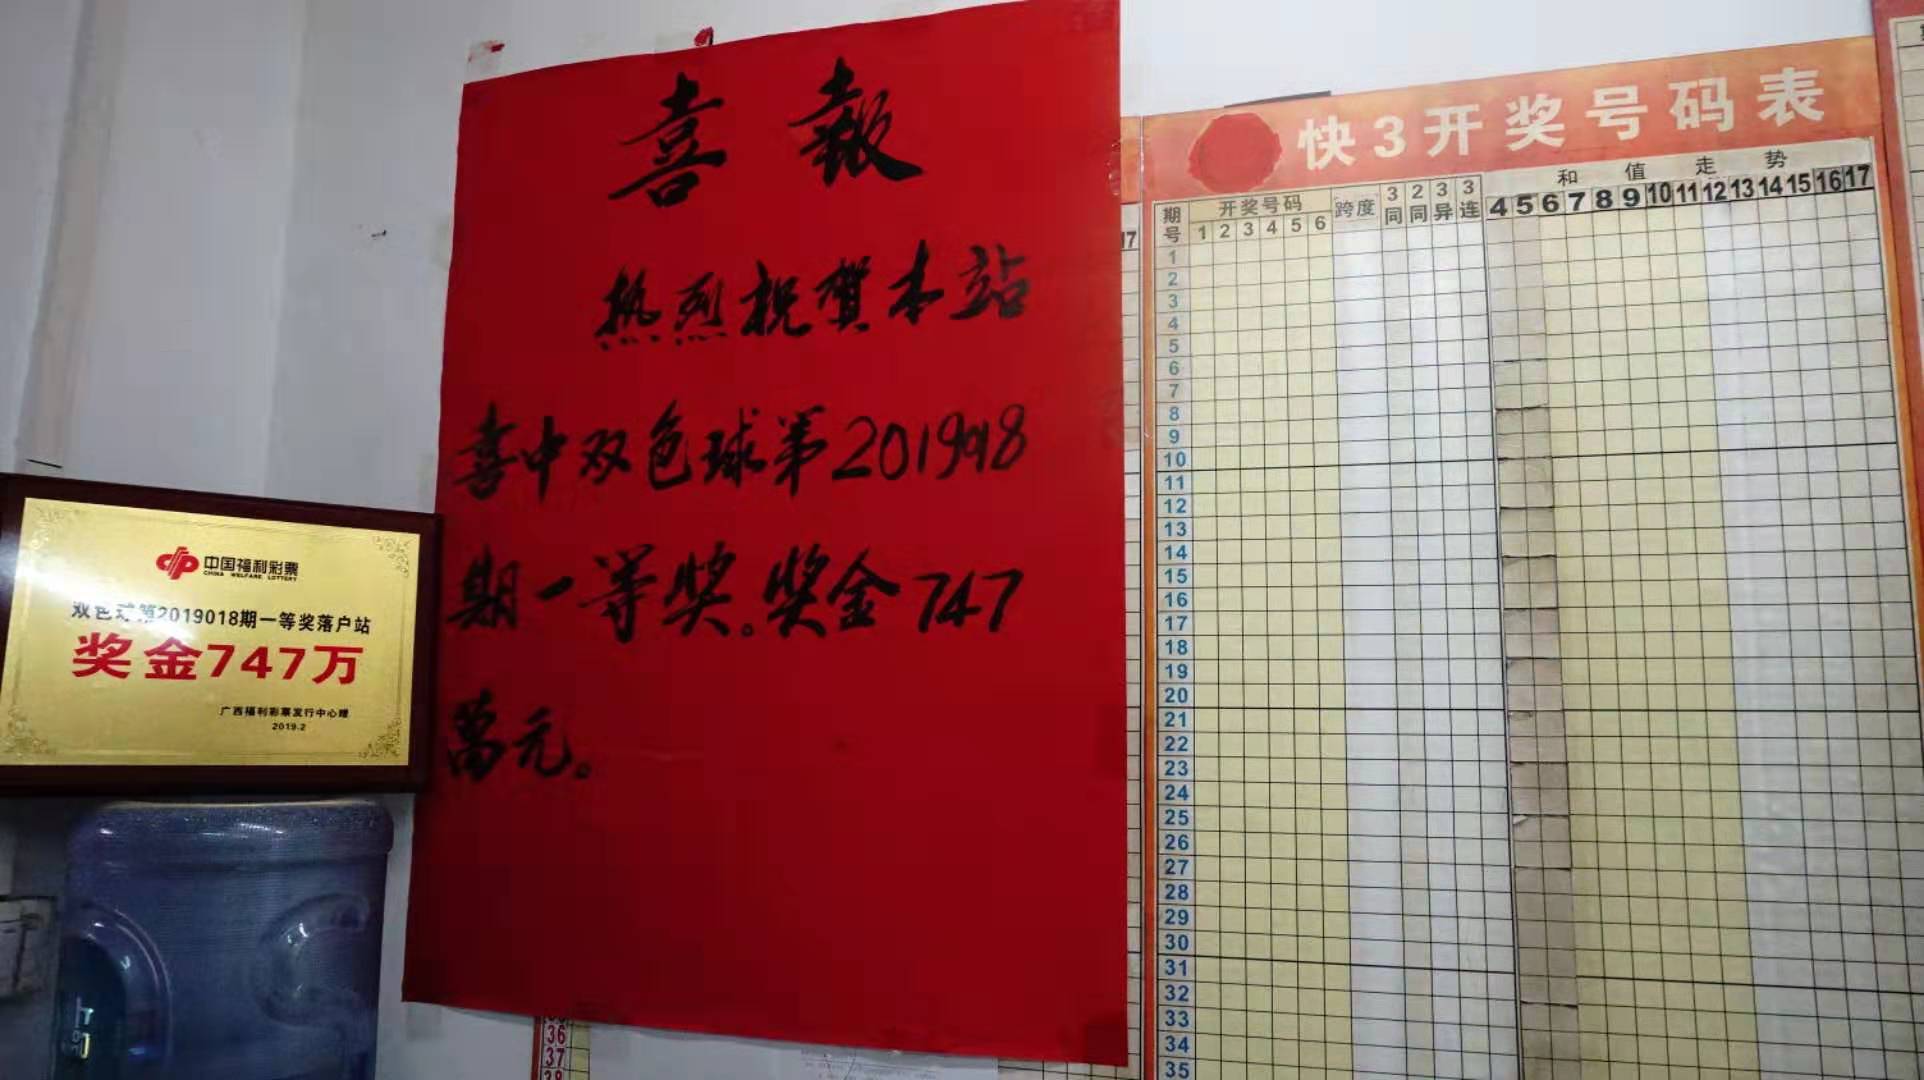 喜報
热烈祝賀本站
喜中双色球第2019018
期一等奖。奖金747
萬元。
中国福利彩票
CHINA WELFARE LOTTERY
双色球第2019018期一等奖落户站
奖金747万
广西福利彩票发行中心赠
2019.2
快3开奖号码表
期号 开奖号码 跨度 3同 2同 3异 3连 和值走势
1 2 3 4 5 6 4 5 6 7 8 9 10 11 12 13 14 15 16 17
1
2
3
4
5
6
7
8
9
10
11
12
13
14
15
16
17
18
19
20
21
22
23
24
25
26
27
28
29
30
31
32
33
34
35
17
36
37
38